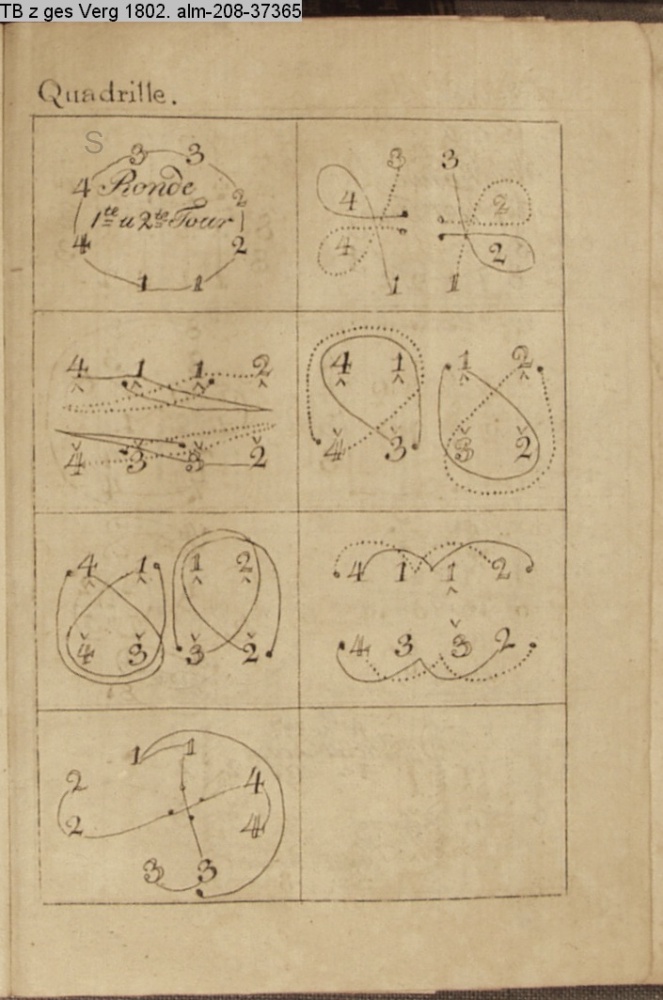 TB z ges Verg 1802. alm-208-37365
Quadrille.
S
3 3
4 Ronde 2
1te u 2te Tour
4 2
1 1
3 3
4 2
4 2
1 1
4 1 1 2
4 3 3 2
4 1 1 2
4 3 3 2
4 1 1 2
4 3 3 2
4 1 1 2
4 3 3 2
1 1
2 4
2 4
3 3